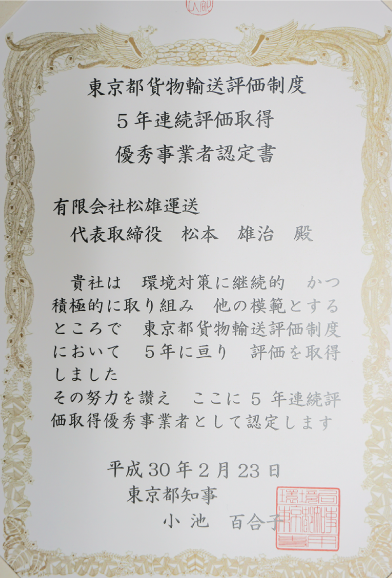 東京都貨物輸送評価制度
5年連続評価取得
優秀事業者認定書
有限会社松雄運送
代表取締役 松本 雄治 殿
貴社は 環境対策に継続的 かつ
積極的に取り組み 他の模範とする
ところで 東京都貨物輸送評価制度
において 5年に亘り 評価を取得
しました
その努力を讃え ここに5年連続評
価取得優秀事業者として認定します
平成30年2月23日
東京都知事
小池 百合子